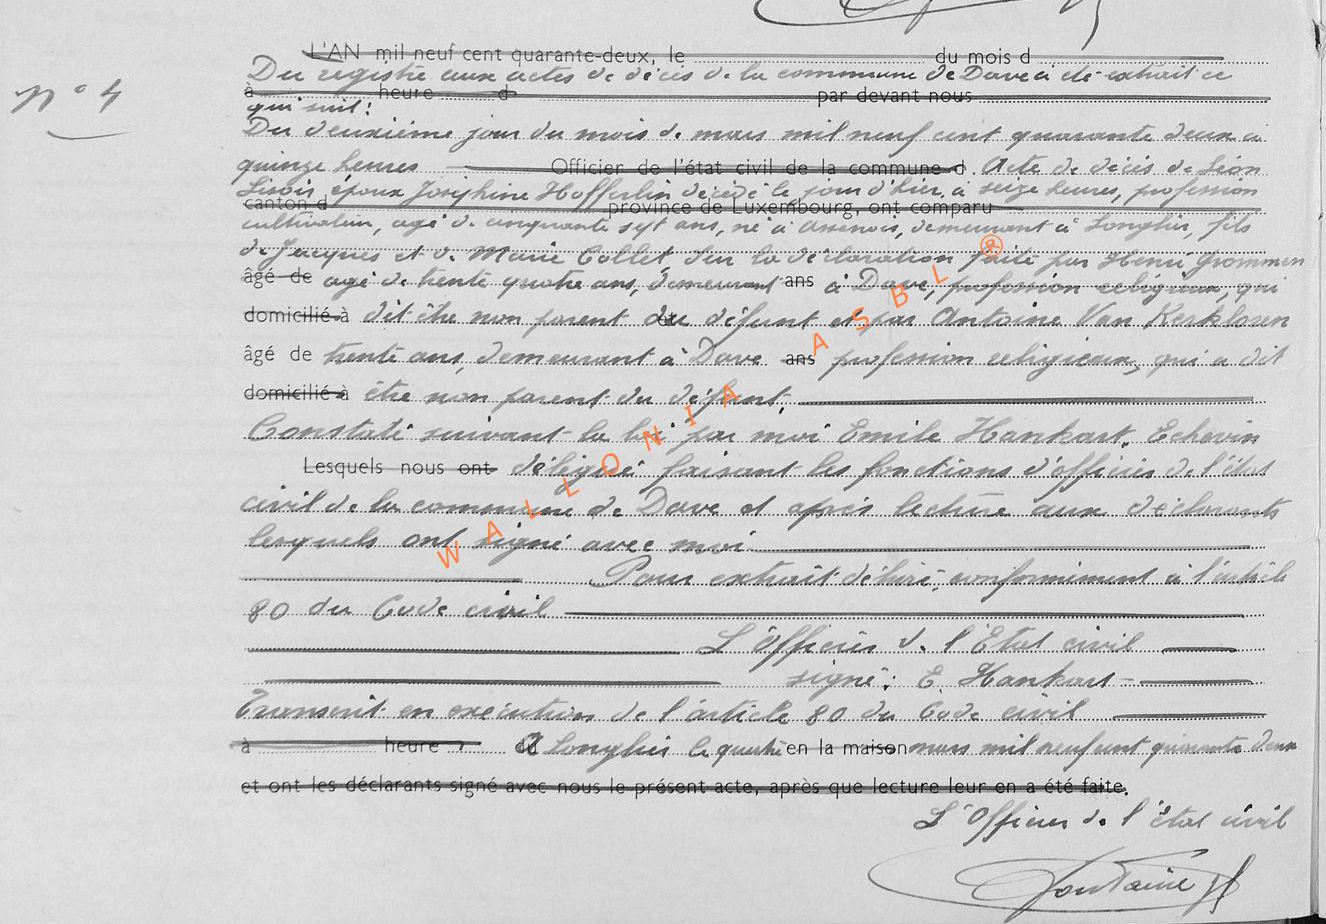 L'AN mil neuf cent quarante-deux, le du mois d
Du registre aux actes de décès de la commune de Dave a été extrait ce
à heure d par devant nous
qui suit:
N° 4
Du deuxième jour du mois de mars mil neuf cent quarante deux à
quinze heures Officier de l'état civil de la commune d Acte de décès de Léon
époux Joséphine Hofferlin décédé le jour d'hier, à seize heures, profession
canton d province de Luxembourg, ont comparu
cultivateur, agé de cinquante sept ans, né à Assenois, demeurant à Longlier, fils
de Jacques et de Marie Collet. Sur la déclaration faite par Henri Grommen
âgé de agé de trente quatre ans, demeurant ans à Dave, profession religieux, qui
domicilié à dit être non parent du défunt et par Antoine Van Kerkloren
âgé de trente ans, demeurant à Dave ans profession religieux, qui a dit
domicilié à être non parent du défunt.
Constaté suivant la loi par moi Emile Hankart, Echevin
Lesquels nous ont délégué faisant les fonctions d'officier de l'état
civil de la commune de Dave et après lecture aux déclarants
lesquels ont signé avec moi.
Pour extrait délivré conformément à l'article
80 du Code civil
L'Officier de l'Etat civil
signé: E. Hankart
Transcrit en exécution de l'article 80 du Code civil
à heure A Longlier le quatre en la maison mars mil neuf cent quarante deux
et ont les déclarants signé avec nous le présent acte, après que lecture leur en a été faite.
L'Officier de l'état civil
Fontaine
WALLONIA ASBL ®